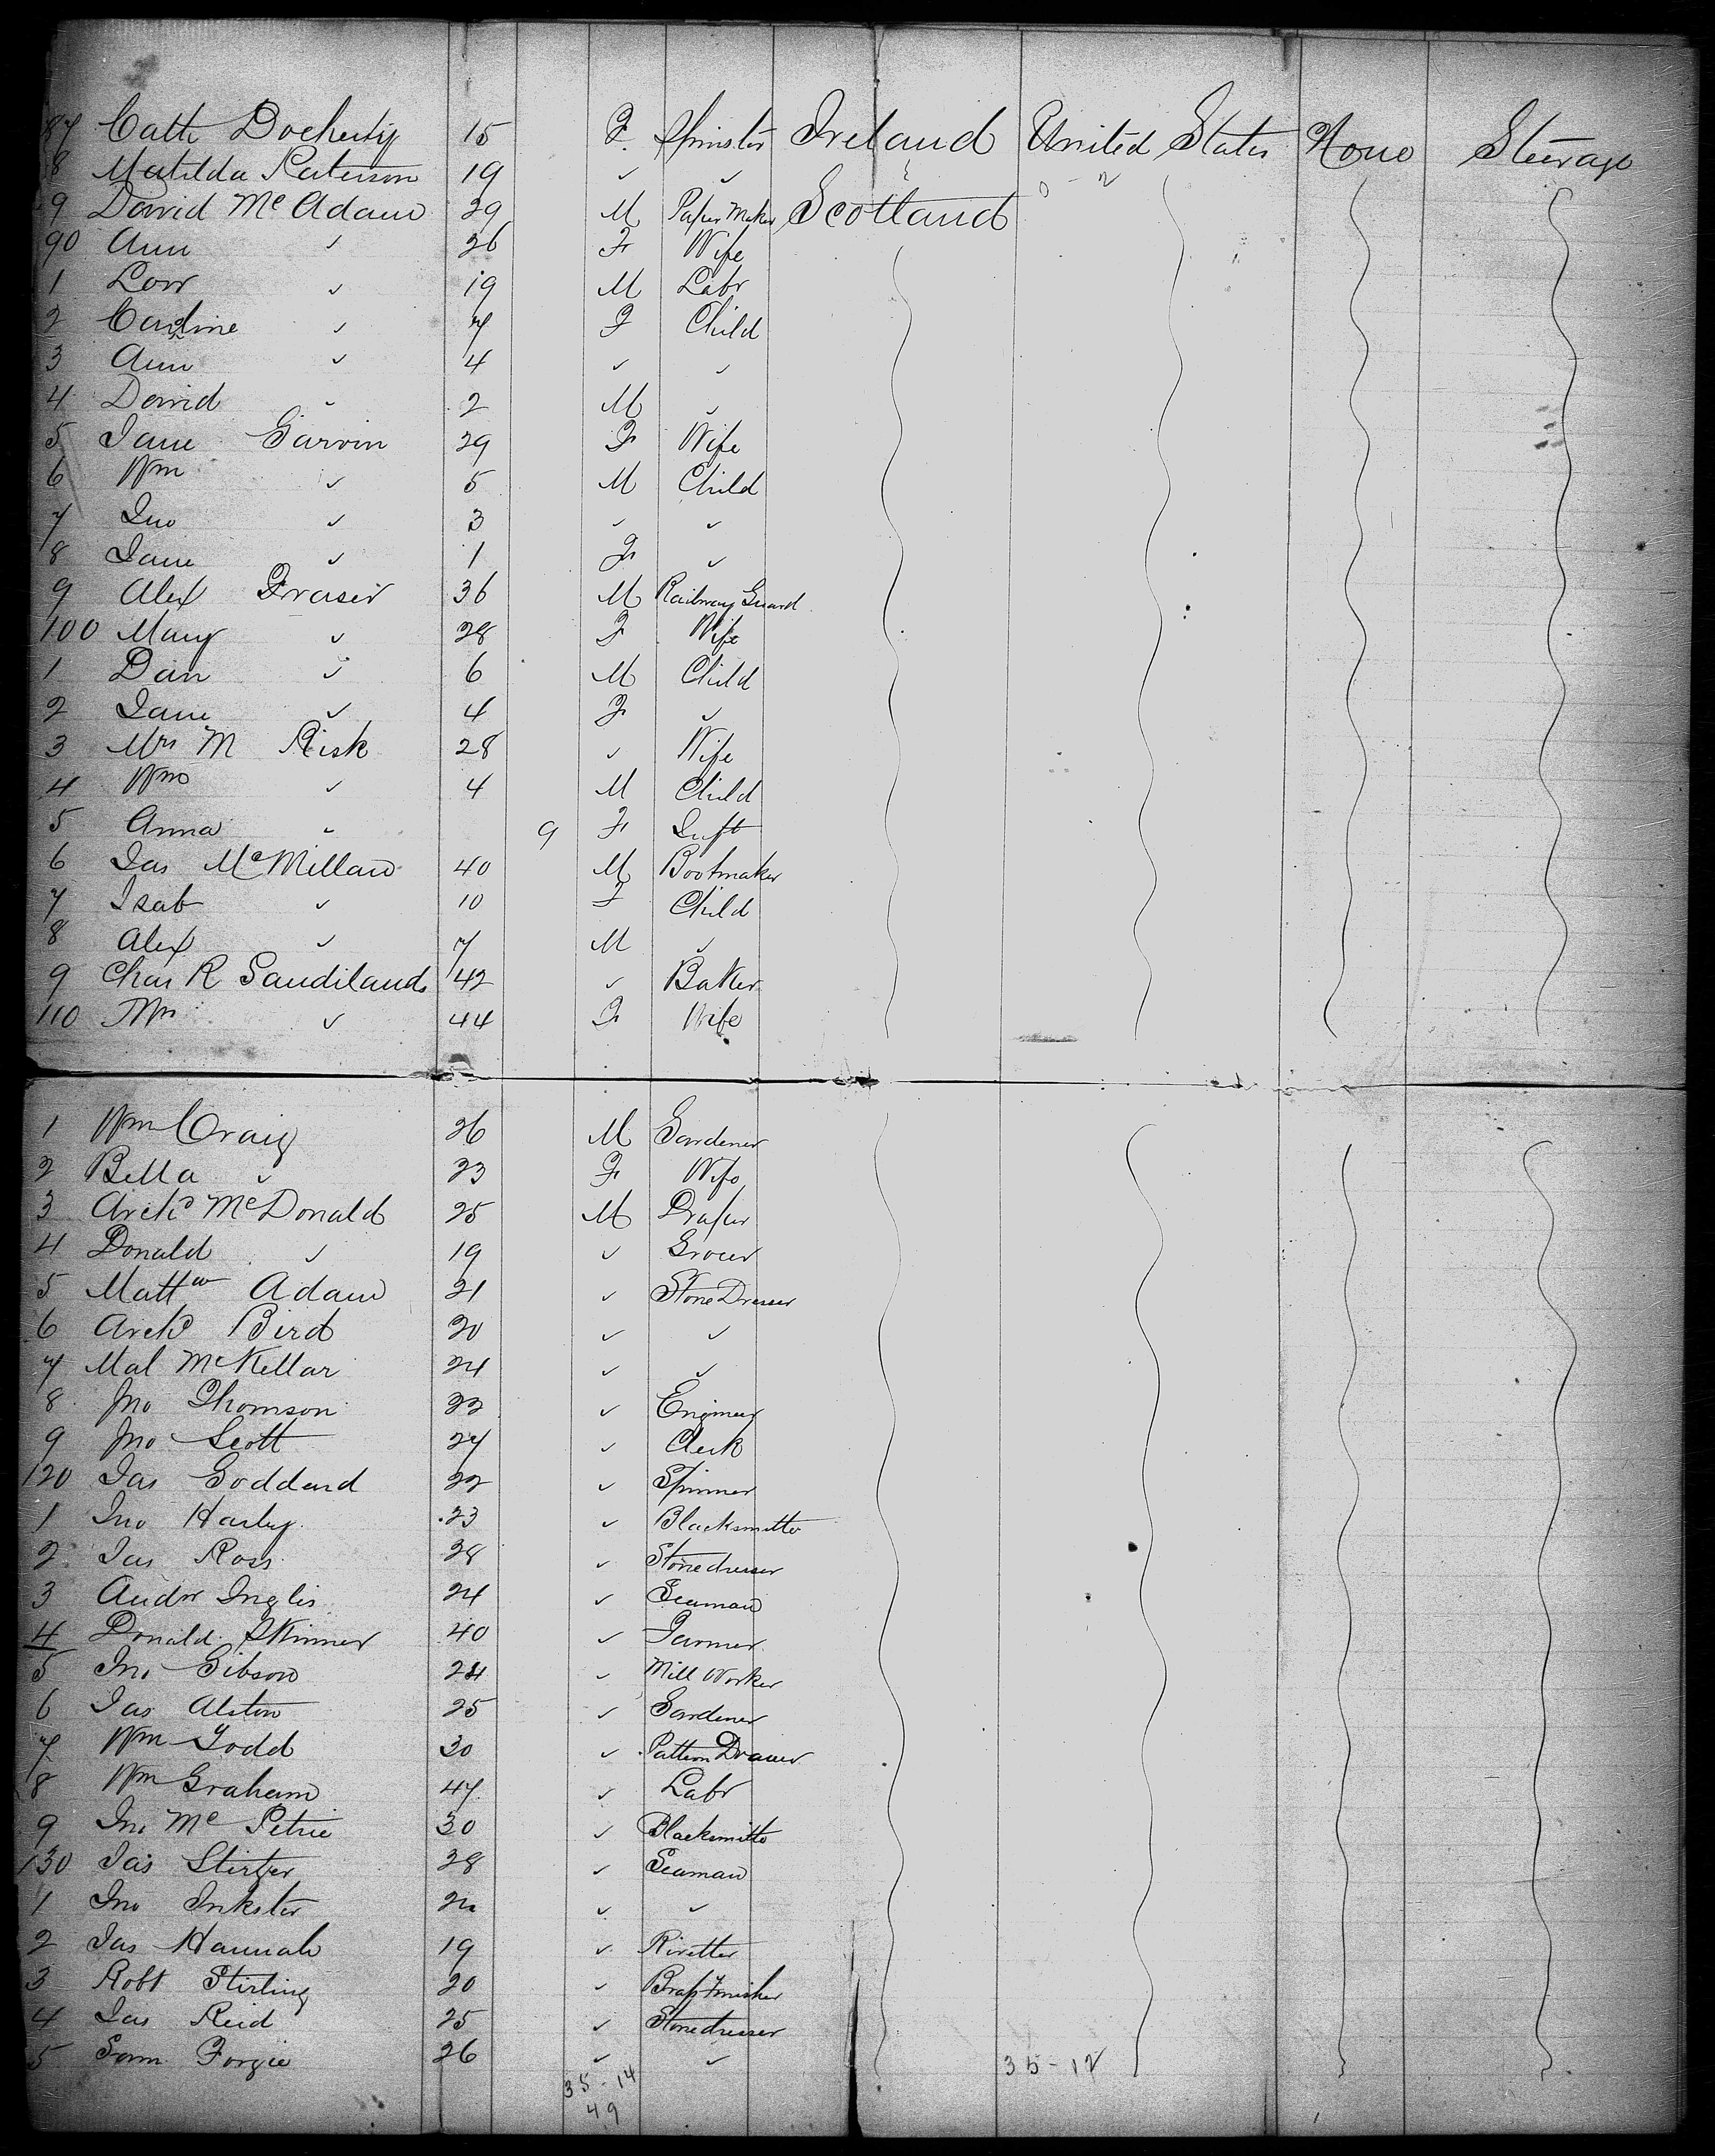 87 Cath Docherty 15 F Spinster Ireland United States None Steerage
8 Matilda Paterson 19 ✓ ✓
9 David McAdam 29 M Paper Maker Scotland
90 Ann ✓ 26 F Wife
1 Low ✓ 19 M Labr
2 Caroline ✓ 7 F Child
3 Ann ✓ 4 ✓ ✓
4 David ✓ 2 M ✓
5 Jane Garvin 29 F Wife
6 Wm ✓ 5 M Child
7 Jno ✓ 3 ✓ ✓
8 Jane ✓ 1 F ✓
9 Alex Fraser 36 M Railway Guard
100 Mary ✓ 28 F Wife
1 Dan ✓ 6 M Child
2 Jane ✓ 4 F ✓
3 Mrs M Risk 28 ✓ Wife
4 Wm ✓ 4 M Child
5 Anna ✓ 9 F Inft
6 Jas McMillan 40 M Bootmaker
7 Isab ✓ 10 F Child
8 Alex ✓ 7 M ✓
9 Chas R Sandilands 42 ✓ Baker
110 Mrs ✓ 44 F Wife
1 Wm Craig 26 M Gardener
2 Bella ✓ 23 F Wife
3 Archd McDonald 25 M Draper
4 Donald ✓ 19 ✓ Grocer
5 Mattw Adam 21 ✓ Stone Dresser
6 Archd Bird 20 ✓ ✓
7 Mal McKellar 24 ✓ ✓
8 Jno Thomson 22 ✓ Engineer
9 Jno Scott 27 ✓ Clerk
120 Jas Goddard 22 ✓ Spinner
1 Jno Harley 23 ✓ Blacksmith
2 Jas Ross 28 ✓ Stonedresser
3 Andw Inglis 24 ✓ Seaman
4 Donald Skinner 40 ✓ Farmer
5 Jno Gibson 24 ✓ Mill Worker
6 Jas Alston 25 ✓ Gardener
7 Wm Todd 30 ✓ Pattern Drawer
8 Wm Graham 47 ✓ Labr
9 Jno Mc Petrie 30 ✓ Blacksmith
130 Jas 28 ✓ Seaman
1 Jno Inkster ✓ ✓
2 Jas Hannah 19 ✓ Rivetter
3 Robt Stirling 20 ✓ Brass Finisher
4 Jas Reid 25 ✓ Stonedresser
5 Sam Forgie 26 ✓ ✓
35-14 35-12
49